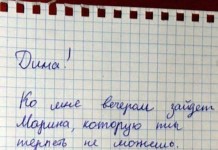 Дима!
Ко мне вечером зайдет
Марина, которую ты
терпеть не можешь.